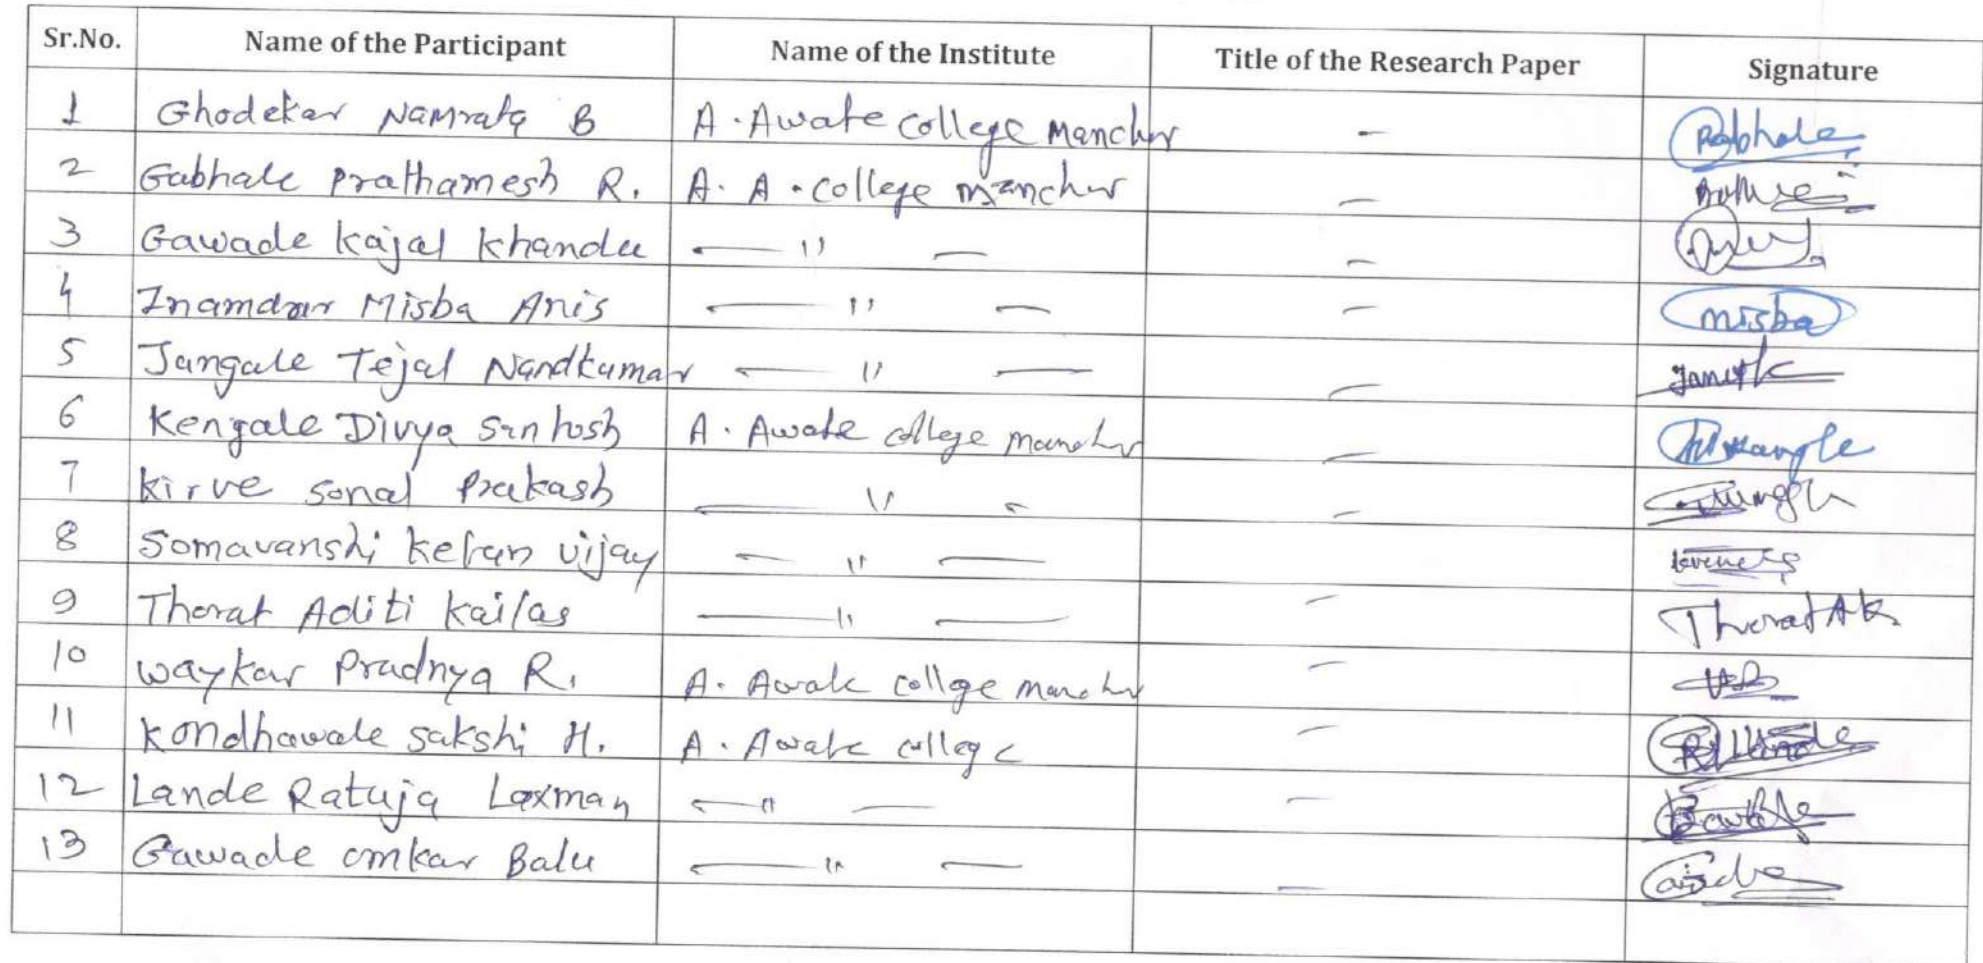 Sr.No. Name of the Participant Name of the Institute Title of the Research Paper Signature
1 Ghodekar Namrata B A. Awate college Manchar -
2 Gabhale Prathamesh R. A. A. college manchar -
3 Gawade Kajal Khandu — " — -
4 Inamdar Misba Anis — " — - misba
5 Jangale Tejal Nandkumar — " — -
6 Kengale Divya Santosh A. Awate college manchar -
7 Kirve Sonal Prakash — " - -
8 Somavanshi Ketan Vijay — " —
9 Thorat Aditi Kailas — " — - Thorat Ak
10 Waykar Pradnya R. A. Awate college manchar -
11 Kondhawale Sakshi H. A. Awate college -
12 Lande Rutuja Laxman — " — -
13 Gawade Omkar Balu — " — -